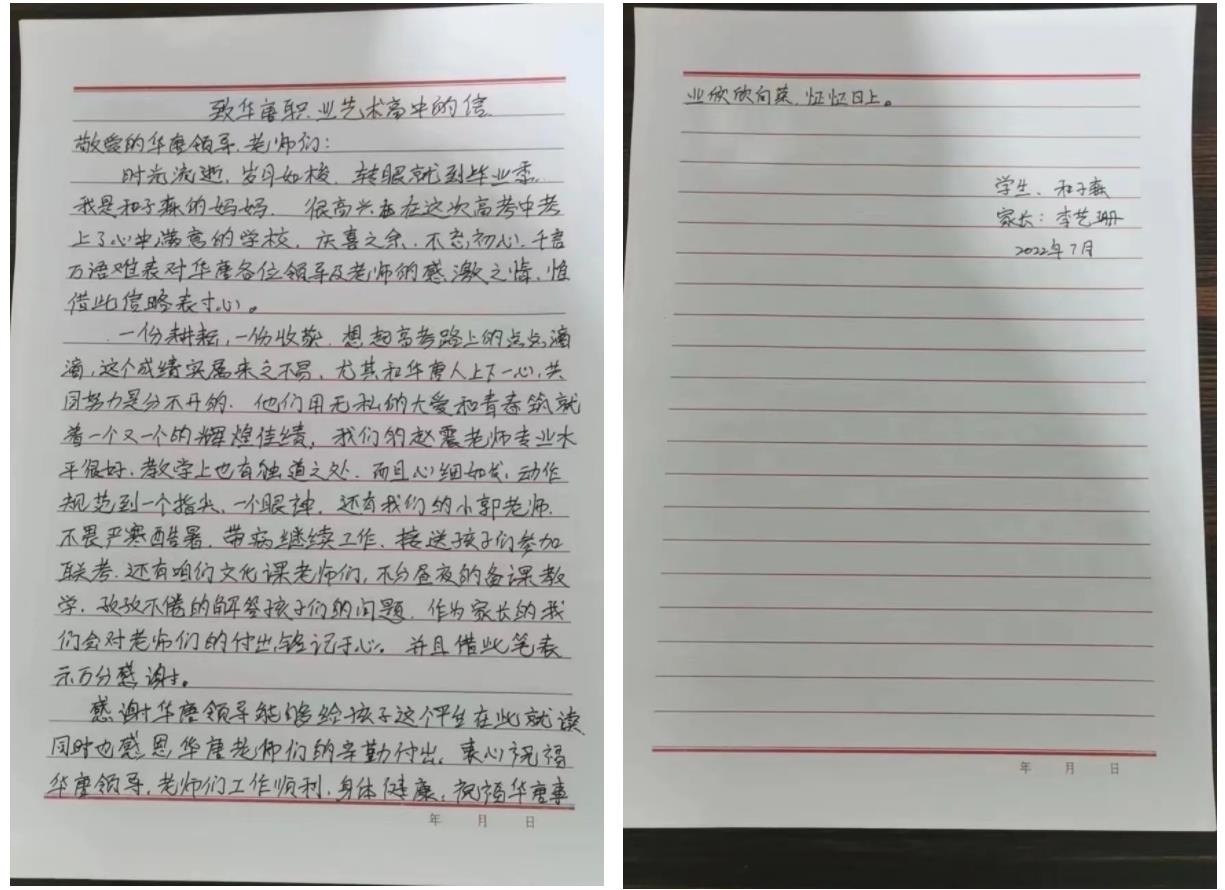 致华唐职业艺术高中的信
敬爱的华唐领导、老师们：
时光流逝，岁月如梭，转眼就到毕业季。
我是和子森的妈妈，很高兴在这次高考中考
上了心中满意的学校，庆喜之余，不忘初心，千言
万语难表对华唐各位领导及老师的感激之情，惟
借此信略表寸心。
一份耕耘，一份收获，想起高考路上的点点滴
滴，这个成绩实属来之不易，尤其和华唐人上下一心，共
同努力是分不开的，他们用无私的大爱和青春筑就
着一个又一个的辉煌佳绩，我们的赵震老师专业水
平很好，教学上也有独道之处，而且心细如发，动作
规范到一个指尖、一个眼神，还有我们的小郭老师，
不畏严寒酷暑，带病继续工作，接送孩子们参加
联考，还有咱们文化课老师们，不分昼夜的备课教
学，孜孜不倦的解答孩子们的问题，作为家长的我
们会对老师们的付出铭记于心。并且借此笔表
示万分感谢。
感谢华唐领导能够给孩子这个平生在此就读，
同时也感恩华唐老师们的辛勤付出。衷心祝福
华唐领导，老师们工作顺利，身体健康，祝福华唐事
年 月 日
业欣欣向荣，怔怔日上。
学生：和子森
家长：李艺珊
2022年7月
年 月 日